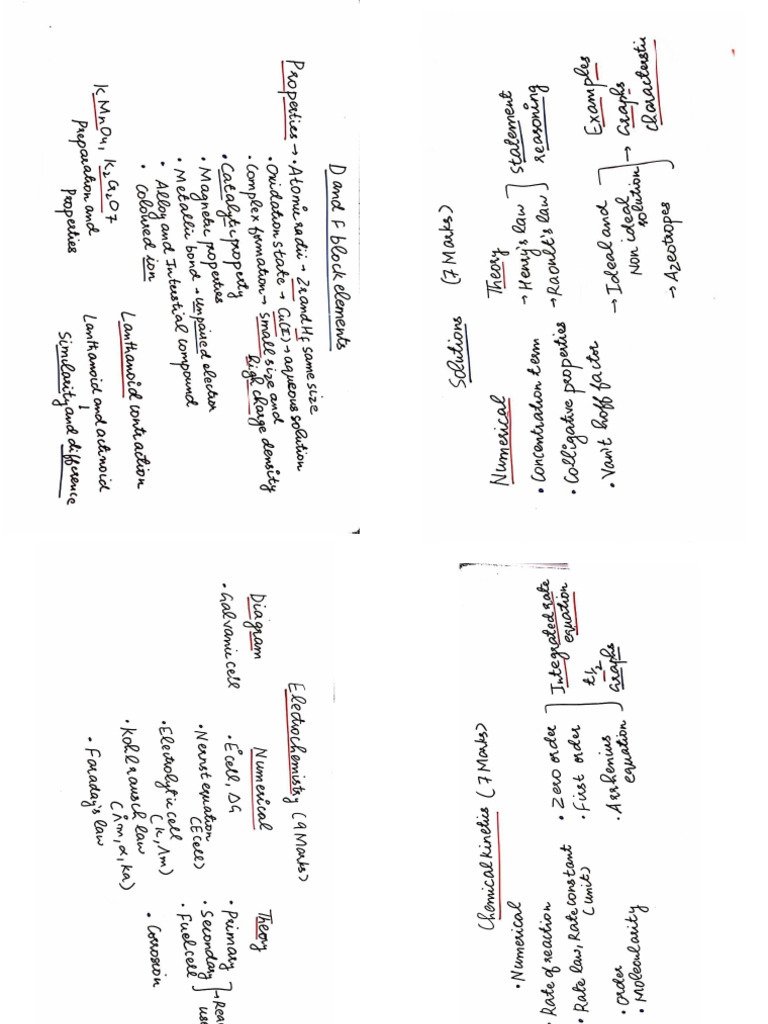 D and F block elements
Properties → • Atomic radii → Zr and Hf same size
• Oxidation state → Cu(I) → aqueous solution
• Complex formation → Small size and
high charge density
• Catalytic property
• Magnetic properties
• Metallic bond → unpaired electron
• Alloy and Interstitial compound
• Coloured ion
KMnO4, K2Cr2O7
Preparation and
Properties
Lanthanoid contraction
Lanthanoid and actinoid
↓
Similarity and difference
Solutions (7 Marks)
Numerical
• Concentration term
• Colligative properties
• Van't hoff factor
Theory
→ Henry's law
→ Raoult's law
Statement
reasoning
→ Ideal and
Non ideal
solution
→ Azeotropes
→ Examples
Graphs
characteristi
Electrochemistry (9 Marks)
Diagram
• Galvanic cell
Numerical
• E°cell, ΔG
• Nernst equation
(Ecell)
• Electrolytic cell
(κ, Λm)
• Kohlrausch law
(Λ°m, α, Ka)
• Faraday's law
Theory
• Primary
• Secondary
• Fuel cell
• Corrosion
Chemical kinetics (7 Marks)
• Numerical
• Rate of reaction
• Rate law, Rate constant
(unit)
• Order
• Molecularity
• Zero order
• First order
Integrated rate
equation
• Arrhenius
equation
t1/2
Graphs